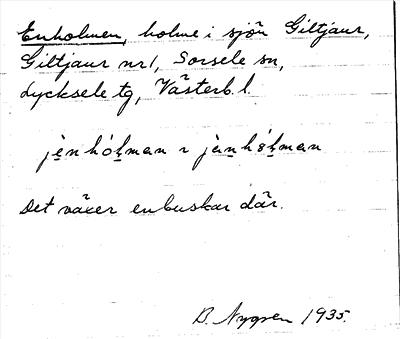 Enholmen, holme i sjön Giltjaur,
Giltjaur nr 1, Sorsele sn,
Lycksele tg, Västerb. l.
Det växer enbuskar där.
B. Nygren 1935.